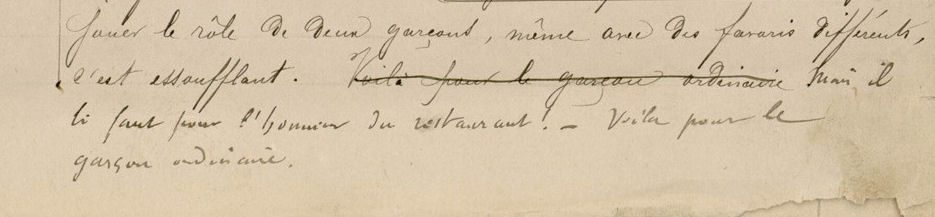 jouer le rôle de deux garçons, même avec des favoris différents,
c'est essoufflant. ~~Voilà pour le garçon ordinaire~~ Mais il
li faut pour l'honneur du restaurant! — Voila pour le
garçon ordinaire.